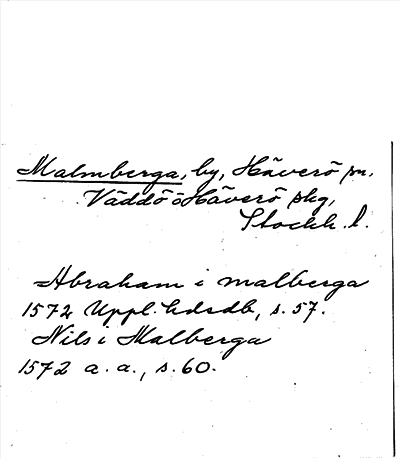 Malmberga, by, Häverö sn,
Väddö o Häverö skg,
Stockh. l.
Abraham i malberga
1572 Uppl. hdrdb, s. 57.
Nils i Malberga
1572 a. a., s. 60.